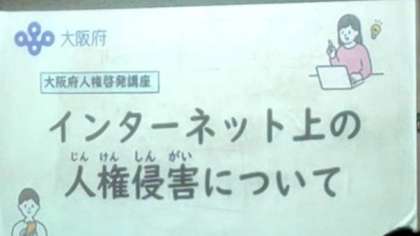 大阪府
大阪府人権啓発講座
インターネット上の
じん けん しん がい
人権侵害について